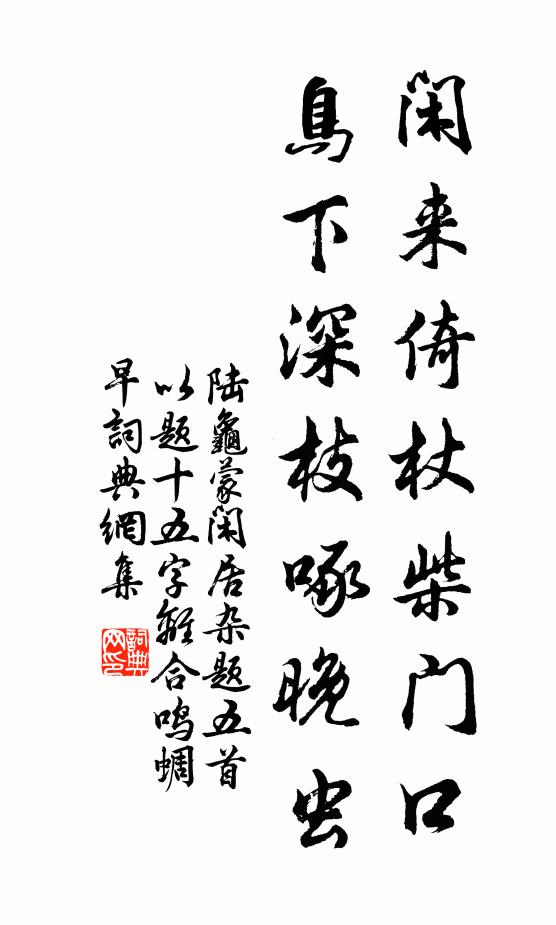 闲来倚杖柴门口
鸟下深枝啄晚虫
陆龜蒙闲居杂题五首
以题十五字離合鸣蜩
早詞典網集
詞典网印